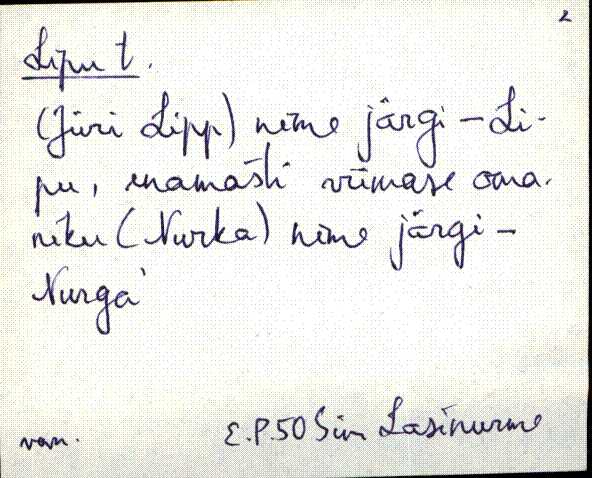 2
Lipu t.
(Jüri Lipp) nime järgi – Li-
pu, enamasti viimase oma-
niku (Nurka) nime järgi –
Nurga'
van. E.P.50 Sim Lasinurme